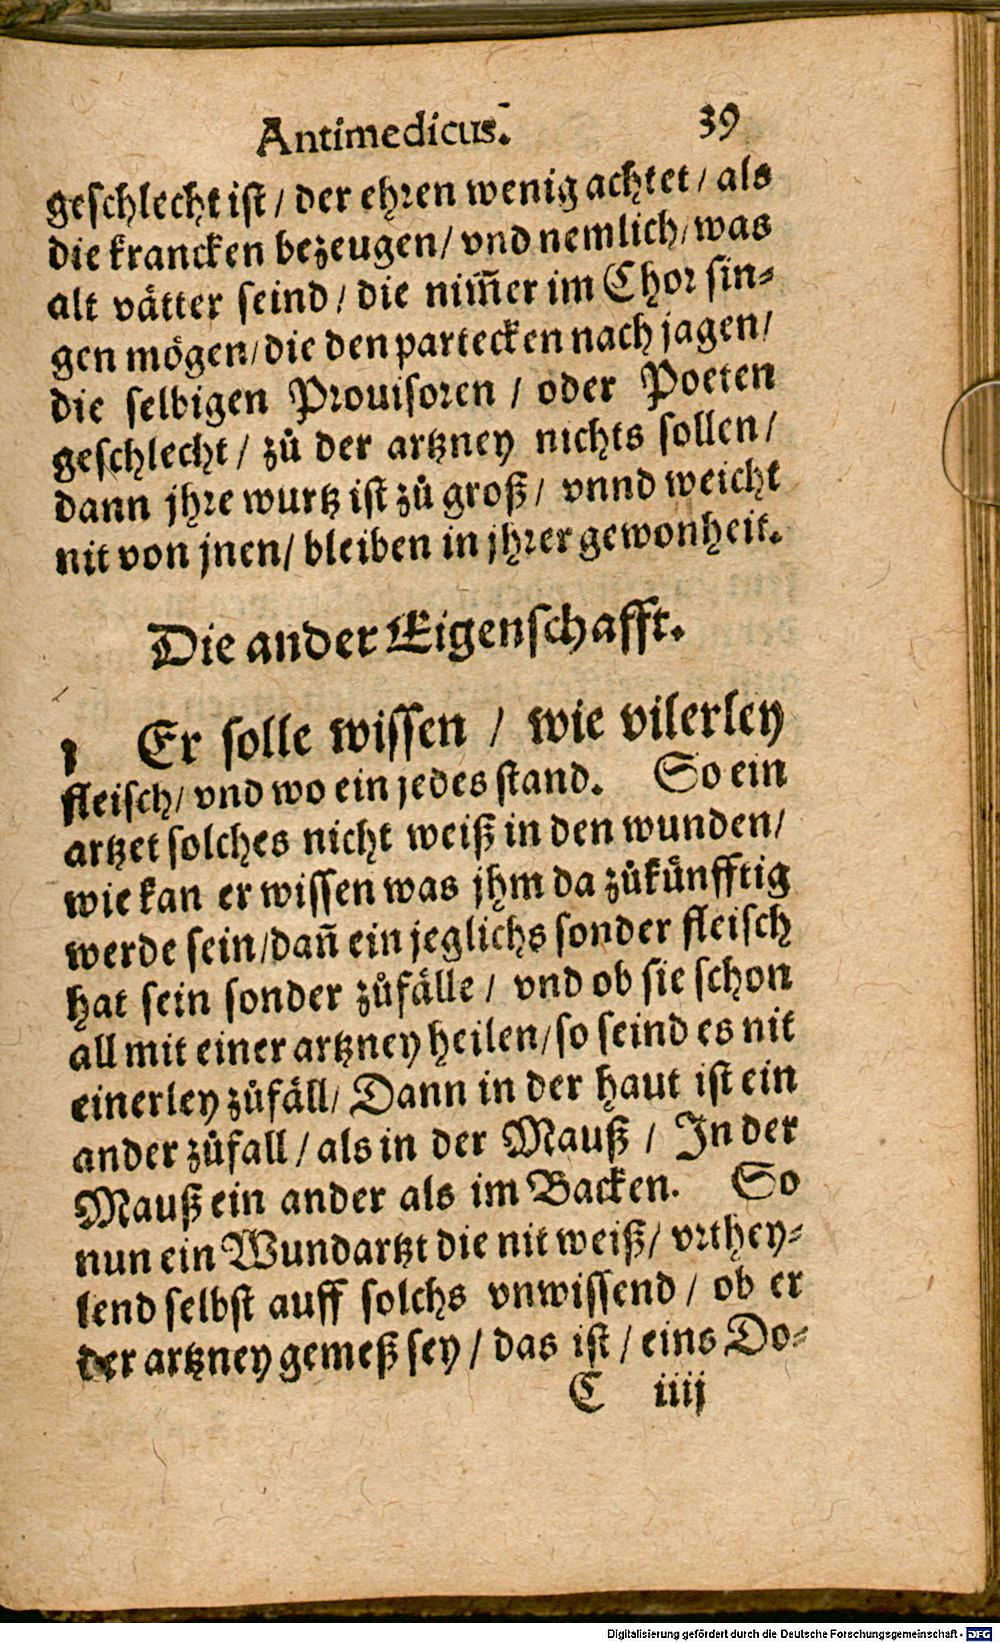 Antimedicus. 39
geschlecht ist / der ehren wenig achtet / als
die krancken bezeugen / vnd nemlich / was
alt vätter seind / die nim̃er im Chor sin⸗
gen mögen / die den partecken nach jagen /
die selbigen Prouisoren / oder Poeten
geschlecht / zů der artzney nichts sollen /
dann jhre wurtz ist zů groß / vnnd weicht
nit von jnen / bleiben in jhrer gewonheit.
Die ander Eigenschafft.
1 Er solle wissen / wie vilerley
fleisch / vnd wo ein jedes stand. So ein
artzet solches nicht weiß in den wunden /
wie kan er wissen was jhm da zůkünfftig
werde sein / dañ ein jeglichs sonder fleisch
hat sein sonder zůfälle / vnd ob sie schon
all mit einer artzney heilen / so seind es nit
einerley zůfäll / Dann in der haut ist ein
ander zůfall / als in der Mauß / In der
Mauß ein ander als im Backen. So
nun ein Wundartzt die nit weiß / vrthey⸗
lend selbst auff solchs vnwissend / ob er
der artzney gemeß sey / das ist / eins Do⸗
C iiij
Digitalisierung gefördert durch die Deutsche Forschungsgemeinschaft - DFG